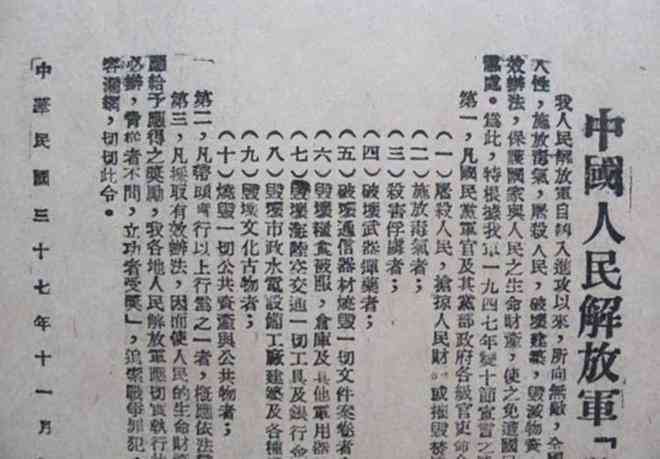 中國人民解放軍「
我人民解放軍自轉入進攻以來，所向無敵，全國
人性，施放毒氣，屠殺人民，破壞建築，毀滅物資
效辦法，保護國家與人民之生命財產，使之免遭國民
懲處。為此，特根據我軍一九四七年雙十節宣言之
第一，凡國民黨軍官及其黨部政府各級官吏命令
（一）屠殺人民，搶掠人民財 或摧毀焚
（二）施放毒氣者；
（三）殺害俘虜者；
（四）破壞武器彈藥者；
（五）破壞通信器材燒毀一切文件案卷者
（六）毀壞糧食被服，倉庫及其他軍用器
（七）毀壞海陸空交通一切工具及銀行金
（八）毀壞市政水電設備工廠建築及各種
（九）毀壞文化古物者；
（十）燒毀一切公共資產與公共物者；
第二，凡帶頭實行以上行為之一者，概應依法
第三，凡採取有效辦法，因而使人民的生命財
應給予應得之獎勵，我各地人民解放軍應切實執行
必辦，脅從者不問，立功者受獎」，追索戰爭罪犯，
容漏網，切切此令。
「中華民國三十七年十一月